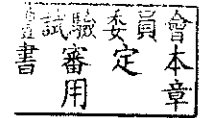 試驗委員會
書審定本
用章